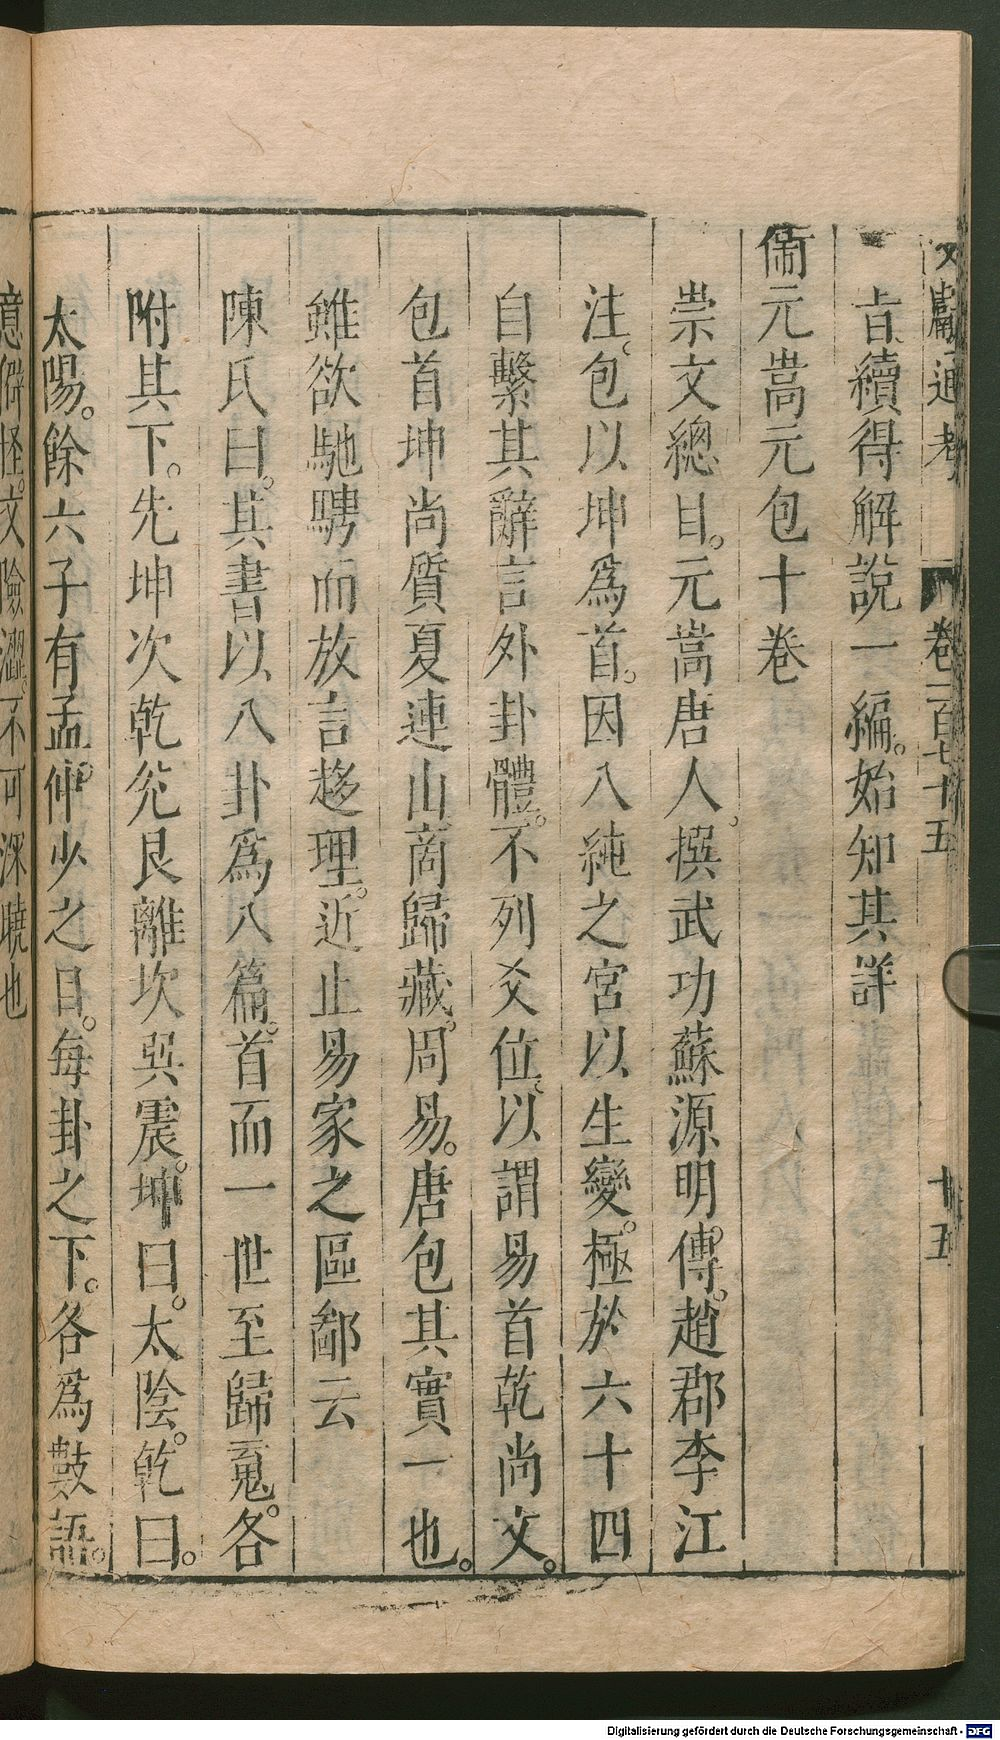 文獻通考 卷一百七十五 十五
旨續得解說一編。始知其詳
衞元嵩元包十卷
崇文總目。元嵩唐人。撰武功蘇源明。傳。趙郡李江
注。包以坤爲首。因八純之宮以生變。極於六十四
自繫其辭言外卦體。不列爻位。以謂易首乾尚文。
包首坤尚質夏連山商歸藏。周易。唐包其實一也。
雖欲馳騁而放言趍理。近止易家之區鄙云
陳氏曰。其書以八卦爲八篇。首而一世至歸䰟。各
附其下。先坤次乾兊艮離坎巽震。坤曰。太陰。乾曰。
太陽。餘六子有孟。仲少之目。每卦之下。各爲數語。
意僻怪。文險澀。不可深曉也
Digitalisierung gefördert durch die Deutsche Forschungsgemeinschaft - DFG